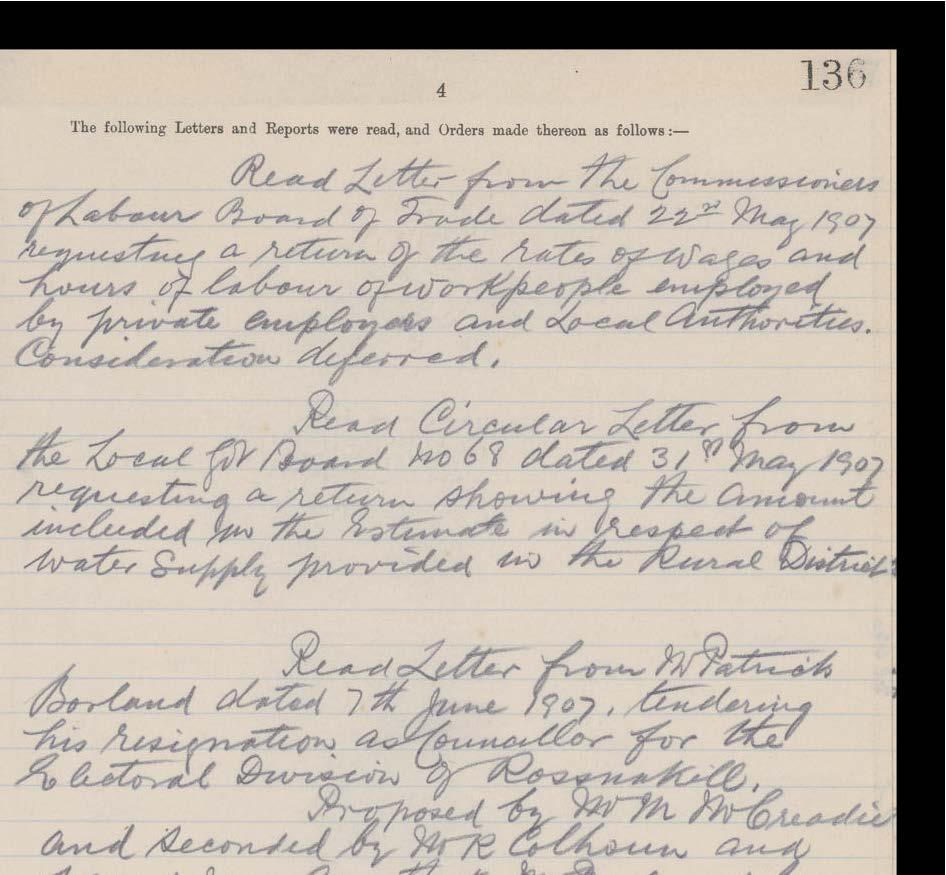 136
4
The following Letters and Reports were read, and Orders made thereon as follows:—
Read Letter from the Commissioners
of Labour Board of Trade dated 22nd May 1907
requesting a return of the rates of wages and
hours of labour of workpeople employed
by private employers and Local Authorities.
Consideration deferred.
Read Circular Letter from
the Local Gov Board No 68 dated 31st May 1907
requesting a return showing the amount
included in the Estimate in respect of
water Supply provided in the Rural District
Read Letter from Mr Patrick
Borland dated 7th June 1907, tendering
his resignation as Councillor for the
Electoral Division of Rossnakill.
Proposed by Mr M McCreadie
and seconded by Mr R Colhoun and